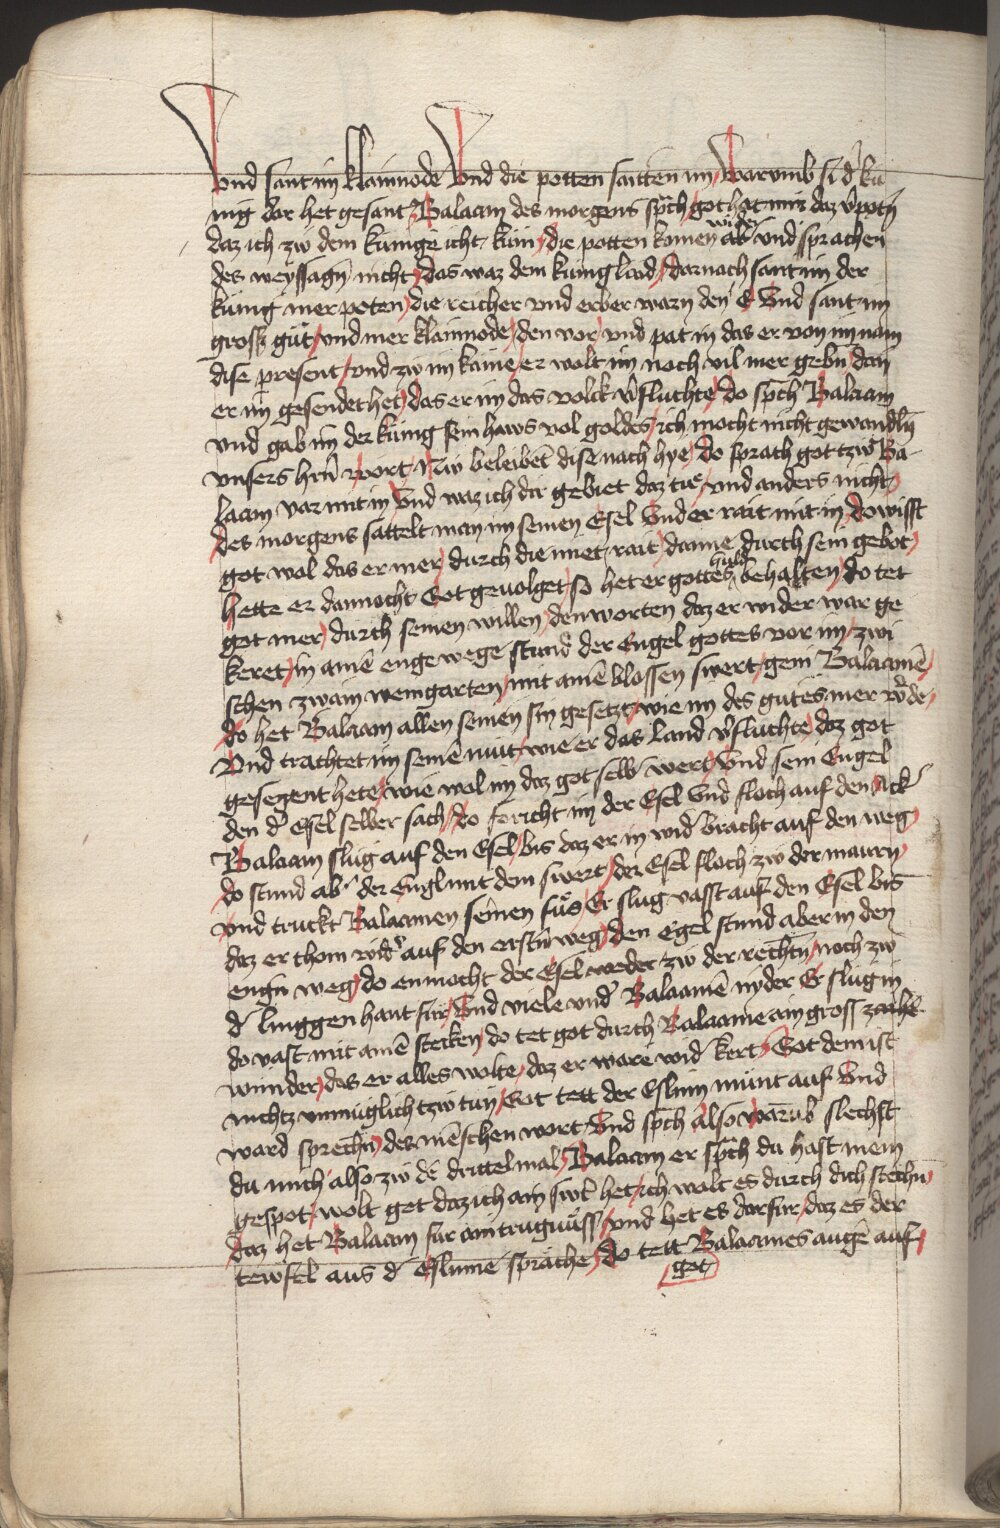 Vnd sant im klainnode Vnd die potten saitten im / Warumb si d' kü
nig dar het gesant / Balaam des morgens sp̄ch / got hat mir daz v̓potn̄
daz ich zw dem künige icht küm / die potten komen wider ab' vnd sprachen
des weyssagn̄ nicht / das waz dem künig laid / darnach sant im der
künig mer poten / die reicher vnd erber warn den E Vnd sant im
gross gůt / vnd mer klainnode / den vor / vnd pat in das er von im nam
dise present / vnd zw im käme / er wolt im noch vil mer gebn̄ / dan
er im gesendet het / das er im das volck v̓fluchte / do sp̄ch Balaam
vnd gab im der künig sein haws vol goldes / ich mocht nicht gewandln̄
vnsers hrn̄ wort / Naw beleibēt dise nach hye / do sprach got tzw Ba-
laam var mit in Vnd waz ich dir gebiet daz tue / vnd anders nicht /
des morgens sattelt man im seinen Esel Vnd er rait mit in / do wisst
got wol das er mer / durch die miet rait / danne durch sein gebot /
hette er dannocht Got geuolget / so het er gottes huld behalten / do tet
got mer / durch seinen willen / den worten daz er wider wär ge
keret / in ainē enge wege stund der Engel gottes vor im / zwi
schen zwain weingarten / mit ainē blossen swert / gein Balaamē /
do het Balaam allen seinen sin gesetzt / wie im des gutes mer wurde /
Vnd trachtet in seinē mut / wie er das land v̓fluchte / daz got
gesegent hete / wie wol im daz got selb wert / Vnd sein Engel
den d' Esel selber sach / do foricht im der Esel Vnd floch auf den Ack'
Balaam slug auf den Esel / bis daz er in wid' bracht auf den weg /
do stund ab' der Engl mit dem swert / der Esel floch zw der maurn /
vnd truckt Balaamen seinen fůs / Er slug vasst auf den Esel bis
daz er chom wid' auf den erstn̄ weg / den egel stund aber in den
engn̄ weg / do enmocht der Esel weder zw der rechtn̄ / noch zw
d' linggen hant für / Vnd viele vnd' Balaamē nyder Er slug in
do vast mit ainē stecken / do tet got durch Balaame ain gross zaiche
wunder / das er alles wolte / daz er ware wid' kert / Got dem ist
nichtz vnmüglich tzw tün / Got tett der Eslinn münt auf Vnd
ward sprechn̄ / des mēschen wort / Vnd sp̄ch also warūb slechst
du mich also zw dē drittel mal / Balaam er sp̄ch du hast mein
gespot / wolt got daz ich ain swt̄ het / ich wolt es durch dich stechn̄ /
daz het Balaam für ain trugnüss / vnd het es darfür / daz es der
tewfel aus d' Eslinne spräche / do tett Balaames augē auf /
got